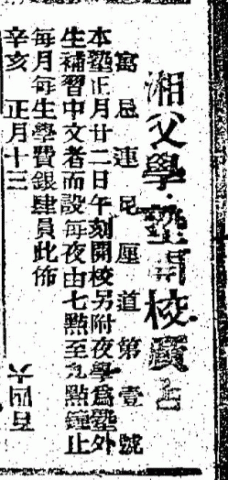 湘父學塾開校廣告
寓忌連尼厘道第壹號
本塾正月廿二日午刻開校另附夜學為塾外
生補習中文者而設每夜由七點至九點鐘止
每月每生學費銀肆員此佈
辛亥 正月十三